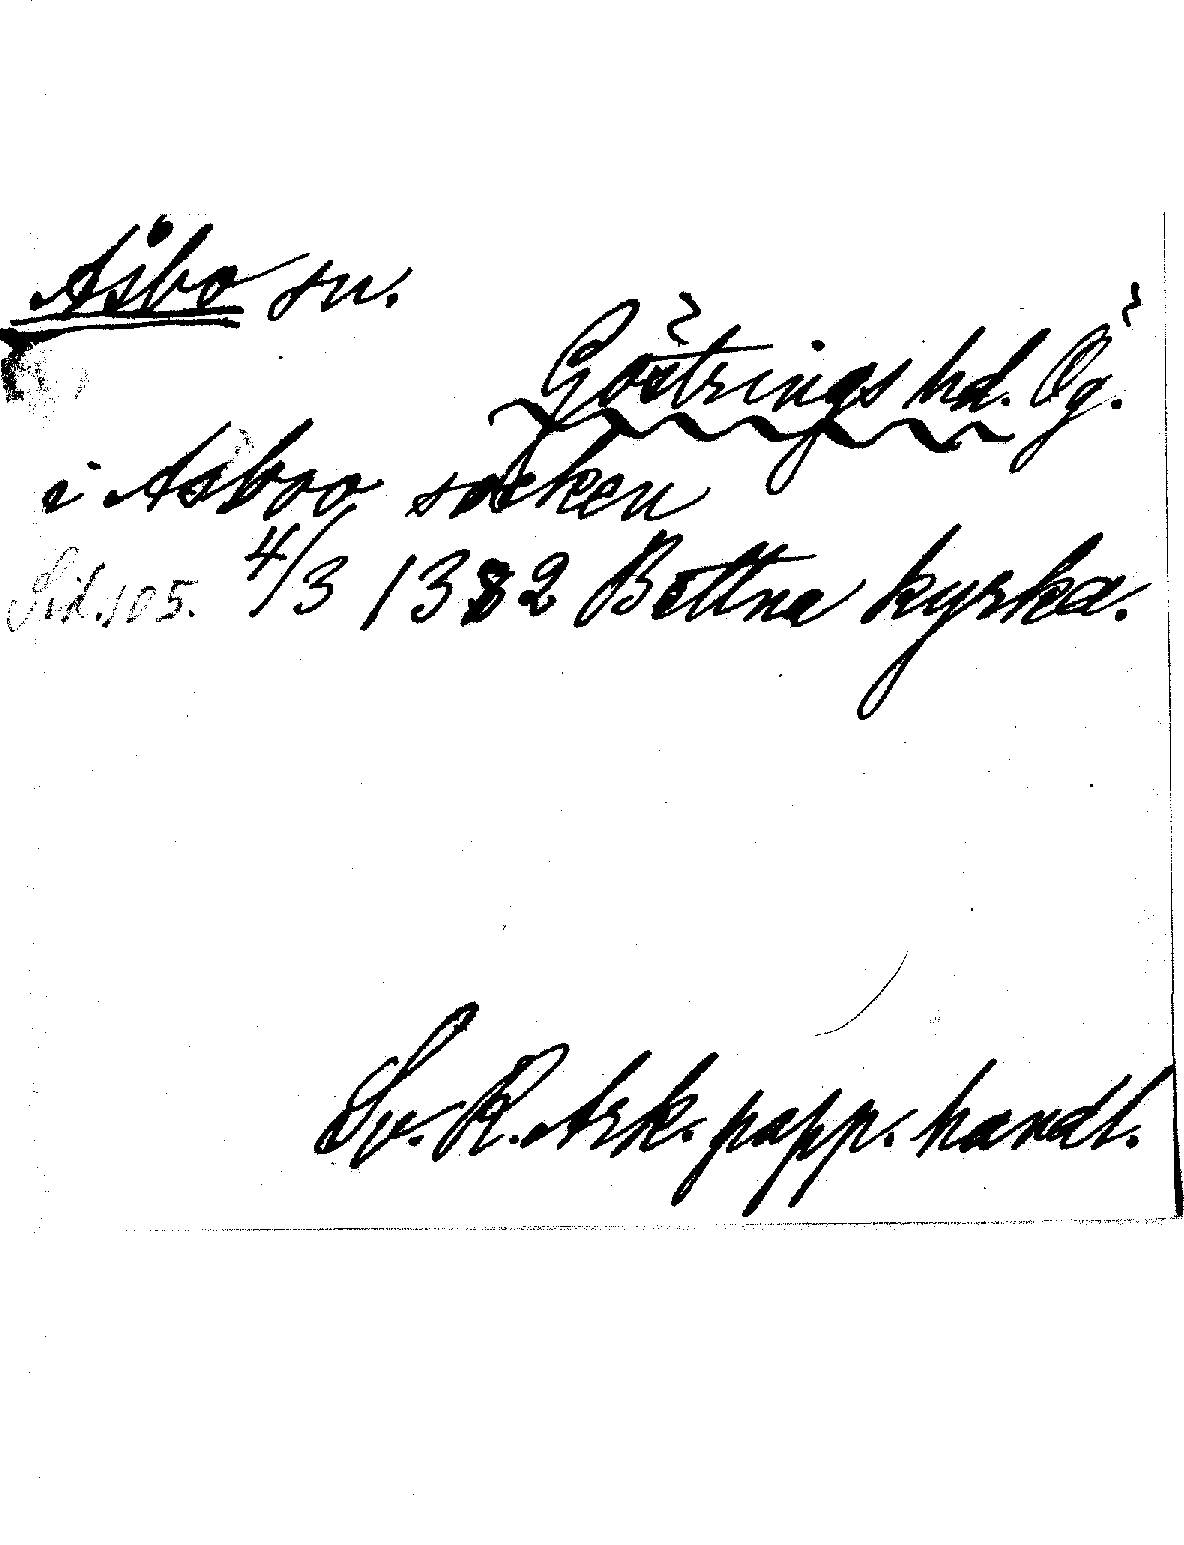 Åsbo sn.
Göstrings hd. Ög.
i Asboo socken
Sid. 105. 4/3 1382 Bettna kyrka.
Sv. R. Ark. papp. handl.